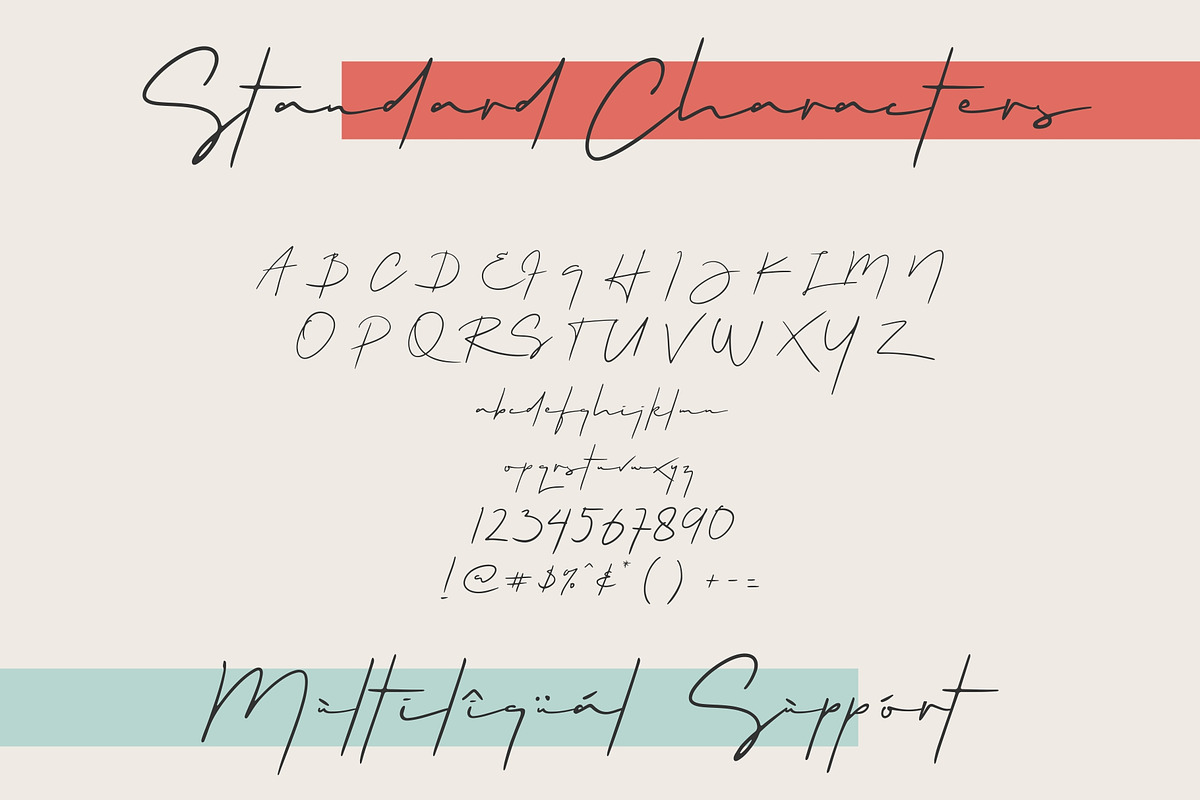 Standard Characters
A B C D E F G H I J K L M N
O P Q R S T U V W X Y Z
abcdefghijklmn
opqrstuvwxyz
1234567890
!@#$%^&*() +-=
Mùltilîqüál Sùppórt